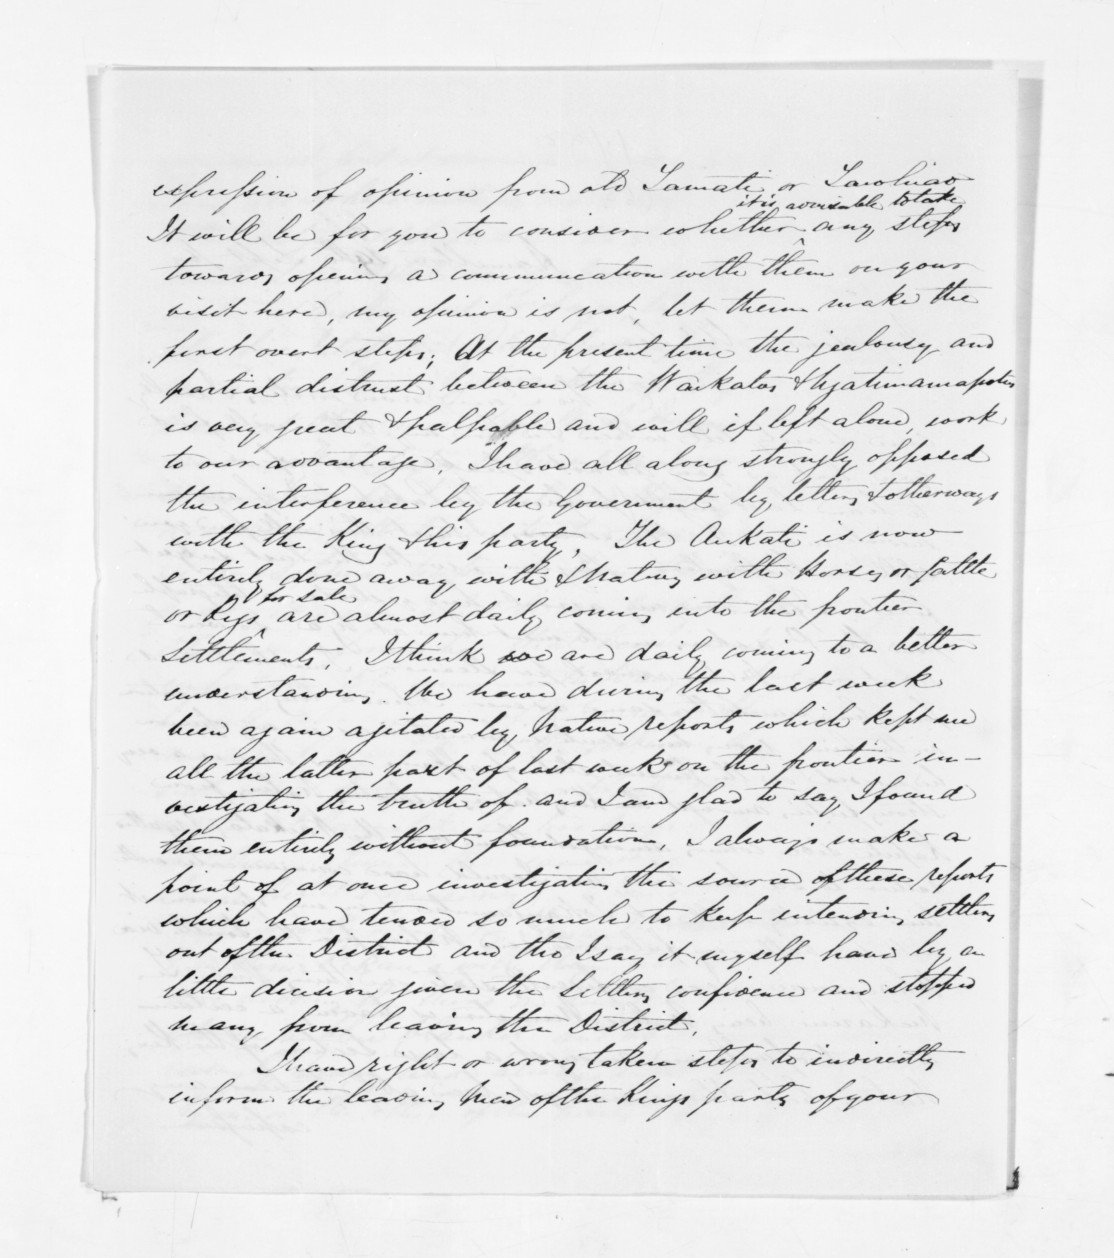 expression of opinion from old Tamati or Tawhiao
it is advisable to take
It will be for you to consider whether ^ any steps
towards opening a communication with them on your
visit here, my opinion is not, let them make the
first overt steps; At the present time the jealousy and
partial distrust between the Waikatos & Ngatimaniapotos
is very great & palpable and will if left alone, work
to our advantage, I have all along strongly opposed
the interference by the Government by letters & otherways
with the King & his party, The Aukati is now
entirely done away with & Natives with Horses or Cattle
for sale
or Pigs ^ are almost daily coming into the frontier
Settlements, I think we are daily coming to a better
understanding. We have during the last week
been again agitated by Native reports which kept me
all the latter part of last week on the frontier in-
vestigating the truth of. and I am glad to say I found
them entirely without foundation, I always make a
point of at once investigating the source of these reports
which have tended so much to keep intending settlers
out of the District and tho I say it myself have by a
little dicision given the Settlers confidence and stopped
many from leaving the District.
I have right or wrong taken steps to indirectly
inform the leading Men of the Kings party of your